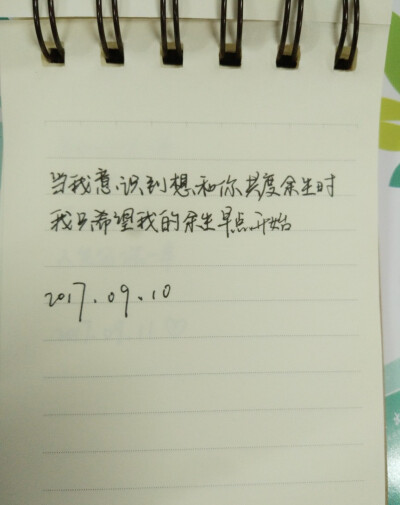 当我意识到想和你共度余生时
我只希望我的余生早点开始
2017.09.10